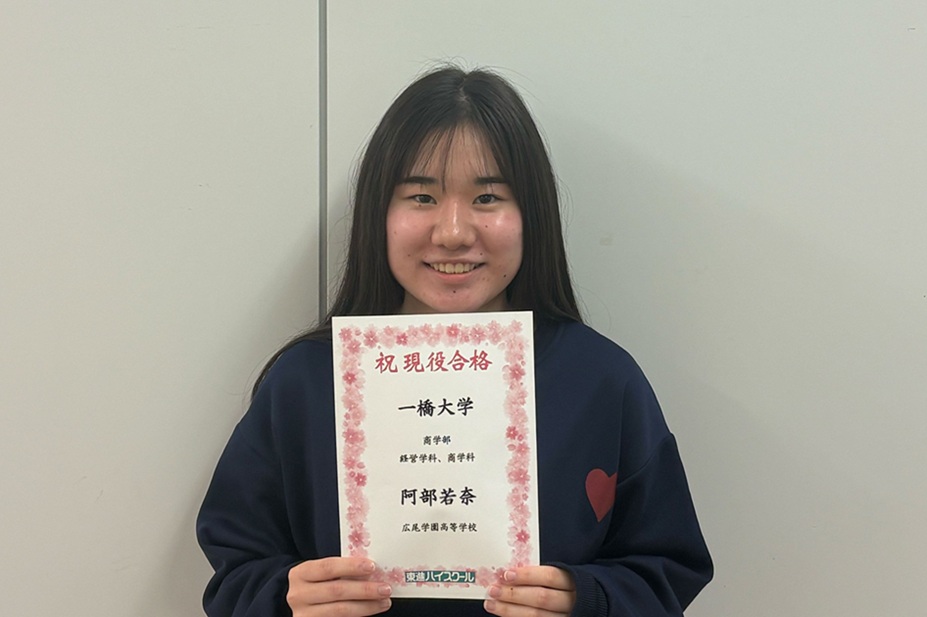 祝 現役合格
一橋大学
商学部
経営学科、商学科
阿部若奈
広尾学園高等学校
東進ハイスクール